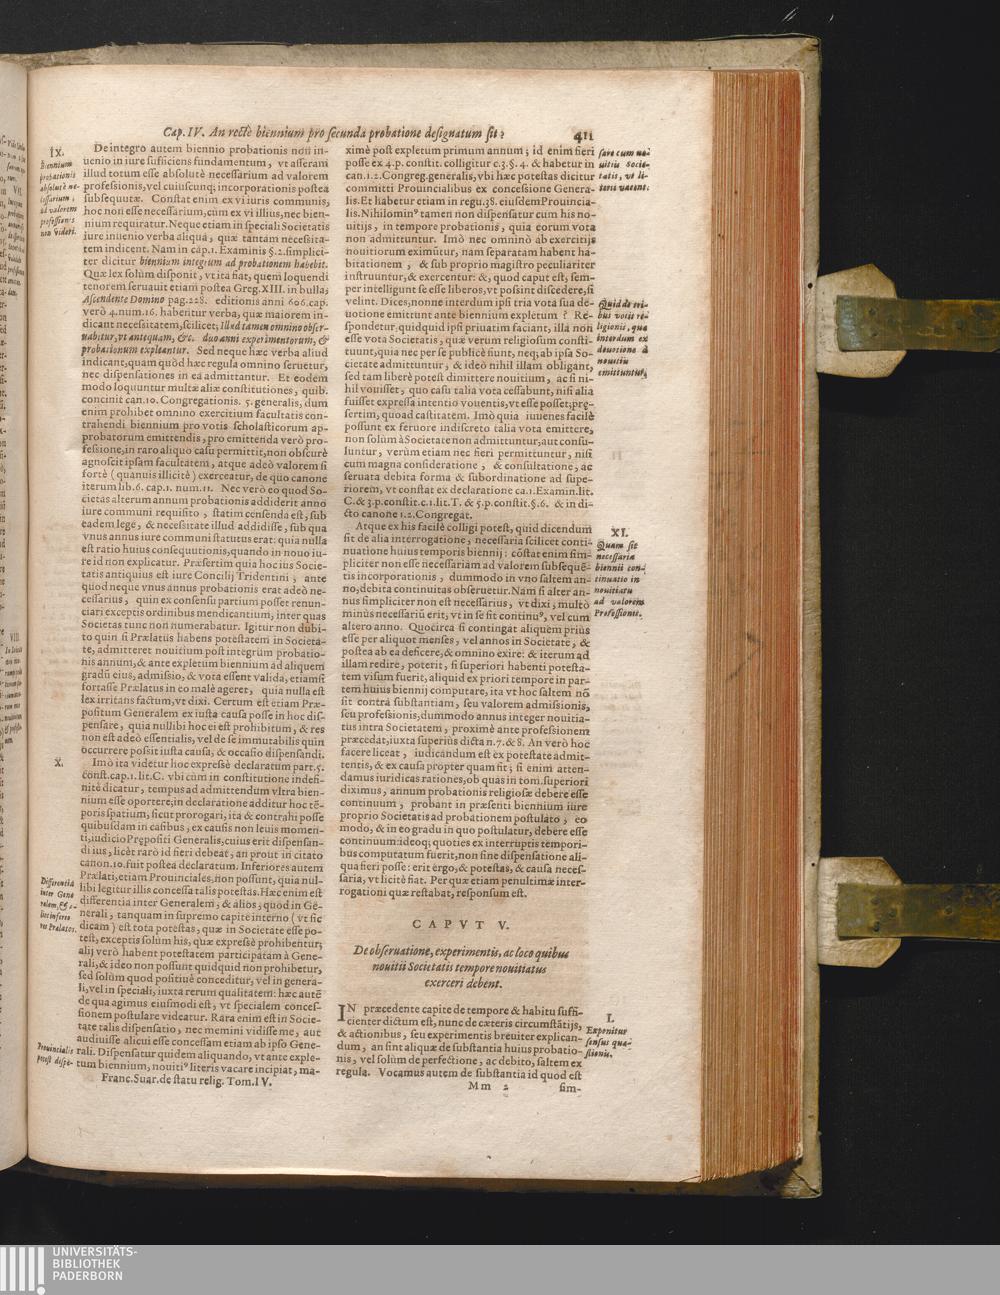 Cap. IV. An rectè biennium pro secunda probatione designatum sit? 411
IX.
Biennium
probationis
absolutè ne-
cessarium,
ad valorem
professionis
non videri.
De integro autem biennio probationis non in-
uenio in iure sufficiens fundamentum, vt asseram
illud totum esse absolutè necessarium ad valorem
professionis, vel cuiuscunq; incorporationis postea
subsequutæ. Constat enim ex vi iuris communis,
hoc non esse necessarium, cùm ex vi illius, nec bien-
nium requiratur. Neque etiam in speciali Societatis
iure inuenio verba aliqua, quæ tantam necessita-
tem indicent. Nam in cap. 1. Examinis §. 2. simplici-
ter dicitur biennium integrum ad probationem habebit.
Quæ lex solùm disponit, vt ita fiat, quem loquendi
tenorem seruauit etiam postea Greg. XIII. in bulla;
Ascendente Domino pag. 228. editionis anni 606. cap.
verò 4. num. 16. habentur verba, quæ maiorem in-
dicant necessitatem, scilicet, Illud tamen omnino obser-
uabitur, vt antequam, &c. duo anni experimentorum, &
probationum expleantur. Sed neque hæc verba aliud
indicant, quam quòd hæc regula omnino seruetur,
nec dispensationes in ea admittantur. Et eodem
modo loquuntur multæ aliæ constitutiones, quib.
concinit can. 10. Congregationis. 5. generalis, dum
enim prohibet omnino exercitium facultatis con-
trahendi biennium pro votis scholasticorum ap-
probatorum emittendis, pro emittenda verò pro-
fessione, in raro aliquo casu permittit, non obscurè
agnoscit ipsam facultatem, atque adeò valorem si
fortè (quanuis illicitè) exerceatur, de quo canone
iterum lib. 6. cap. 1. num. 11. Nec verò eo quod So-
cietas alterum annum probationis addiderit anno
iure communi requisito, statim censenda est, sub
eadem lege, & necessitate illud addidisse, sub qua
vnus annus iure communi statutus erat: quia nulla
est ratio huius consequutionis, quando in nouo iu-
re id non explicatur. Præsertim quia hoc ius Socie-
tatis antiquius est iure Concilij Tridentini, ante
quod neque vnus annus probationis erat adeò ne-
cessarius, quin ex consensu partium posset renun-
ciari exceptis ordinibus mendicantium, inter quas
Societas tunc non numerabatur. Igitur non dubi-
to quin si Prælatus habens potestatem in Societa-
te, admitteret nouitium post integrum probatio-
nis annum, & ante expletum biennium ad aliquem
gradū eius, admissio, & vota essent valida, etiamsi
fortasse Prælatus in eo malè ageret, quia nulla est
lex irritans factum, vt dixi. Certum est etiam Præ-
positum Generalem ex iusta causa posse in hoc dis-
pensare, quia nullibi hoc ei est prohibitum, & res
non est adeò essentialis, vel de se immutabilis quin
occurrere possit iusta causa, & occasio dispensandi.
X.
Imò ita videtur hoc expressè declaratum part. 5.
const. cap. 1. lit. C. vbi cùm in constitutione indefi-
nitè dicatur, tempus ad admittendum vltra bien-
nium esse oportere, in declaratione additur hoc tē-
poris spatium, sicut prorogari, ita & contrahi posse
quibusdam in casibus, ex causis non leuis momen-
ti, iudicio Præpositi Generalis, cuius erit dispensan-
di ius, licèt rarò id fieri debeat, an prout in citato
canon. 10. fuit postea declaratum. Inferiores autem
Prælati, etiam Prouinciales, non possunt, quia nul-
libi legitur illis concessa talis potestas. Hæc enim est
differentia inter Generalem, & alios, quod in Ge-
nerali, tanquam in supremo capite interno (vt sic
dicam) est tota potestas, quæ in Societate esse po-
test, exceptis solùm his, quæ expressè prohibentur;
alij verò habent potestatem participatam à Gene-
rali, & ideo non possunt quidquid non prohibetur,
sed solùm quod positiuè conceditur, vel in genera-
li, vel in speciali, iuxta rerum qualitatem: hæc autē
de qua agimus eiusmodi est, vt specialem conces-
sionem postulare videatur. Rara enim est in Socie-
tate talis dispensatio, nec memini vidisse me, aut
audiuisse alicui esse concessam etiam ab ipso Gene-
rali. Dispensatur quidem aliquando, vt ante exple-
tum biennium, nouitiꝰ literis vacare incipiat, ma-
Differentia
inter Gene
ralem, &
inferio
res Prælatos.
Prouincialis
potest dispe-
Franc. Suar. de statu relig. Tom. IV.
ximè post expletum primum annum; id enim fieri
posse ex 4. p. constit. colligitur c. 3. §. 4. & habetur in
can. 1. 2. Congreg. generalis, vbi hæc potestas dicitur
committi Prouincialibus ex concessione Genera-
lis. Et habetur etiam in regu. 38. eiusdem Prouincia-
lis. Nihilominꝰ tamen non dispensatur cum his no-
uitijs, in tempore probationis, quia eorum vota
non admittuntur. Imò nec omnino ab exercitijs
nouitiorum eximūtur, nam separatam habent ha-
bitationem, & sub proprio magistro peculiariter
instruuntur, & exercentur: &, quod caput est, sem-
per intelligunt se esse liberos, vt possint discedere, si
velint. Dices, nonne interdum ipsi tria vota sua de-
uotione emittunt ante biennium expletum? Re-
spondetur, quidquid ipsi priuatim faciant, illa non
esse vota Societatis, quæ verum religiosum consti-
tuunt, quia nec per se publicè fiunt, neq; ab ipsa So-
cietate admittuntur, & ideò nihil illam obligant,
sed tam liberè potest dimittere nouitium, ac si ni-
hil vouisset, quo casu talia vota cessabunt, nisi alia
fuisset expressa intentio vouentis, vt esse posset, præ-
sertim, quoad castitatem. Imò quia iuuenes facilè
possunt ex feruore indiscreto talia vota emittere,
non solùm à Societate non admittuntur, aut consu-
luntur, verùm etiam nec fieri permittuntur, nisi
cum magna consideratione, & consultatione, ac
seruata debita forma & subordinatione ad supe-
riorem, vt constat ex declaratione ca. 1. Examin. lit.
C. & 3. p. constit. c. 1. lit. T. & 5. p. constit. §. 6. & in di-
cto canone 1. 2. Congregat.
sare cum no-
uitiis socie-
tatis, vt li-
teris vacent.
Quid de tri-
bus votis re-
ligionis, quæ
interdum ex
deuotione à
nouitiis
emittuntur.
Atque ex his facilè colligi potest, quid dicendum
sit de alia interrogatione, necessaria scilicet conti-
nuatione huius temporis biennij: cōstat enim sim-
pliciter non esse necessariam ad valorem subsequē-
tis incorporationis, dummodo in vno saltem an-
no, debita continuitas obseruetur. Nam si alter an-
nus simpliciter non est necessarius, vt dixi, multò
minùs necessariū erit, vt in se sit continuꝰ, vel cum
altero anno. Quocirca si contingat aliquem priùs
esse per aliquot menses, vel annos in Societate, &
postea ab ea deficere, & omnino exire: & iterum ad
illam redire, poterit, si superiori habenti potesta-
tem visum fuerit, aliquid ex priori tempore in par-
tem huius biennij computare, ita vt hoc saltem nō
sit contra substantiam, seu valorem admissionis,
seu professionis, dummodo annus integer nouitia-
tus intra Societatem, proximè ante professionem
præcedat, iuxta superiùs dicta n. 7. & 8. An verò hoc
facere liceat, iudicandum est ex potestate admit-
tentis, & ex causa propter quam fit; si enim atten-
damus iuridicas rationes, ob quas in tom. superiori
diximus, annum probationis religiosæ debere esse
continuum, probant in præsenti biennium iure
proprio Societatis ad probationem postulato, eo
modo, & in eo gradu in quo postulatur, debere esse
continuum: ideoq; quoties ex interruptis tempori-
bus computatum fuerit, non sine dispensatione ali-
qua fieri posse: erit ergo, & potestas, & causa neces-
saria, vt licitè fiat. Per quæ etiam penultimæ inter-
rogationi quæ restabat, responsum est.
XI.
Quam sit
necessaria
biennii con-
tinuatio in
nouitiatu
ad valorem
Professionis.
CAPVT V.
De obseruatione, experimentis, ac loco quibus
nouitii Societatis tempore nouitiatus
exerceri debent.
IN præcedente capite de tempore & habitu suffi-
cienter dictum est, nunc de cæteris circumstātijs,
& actionibus, seu experimentis breuiter explican-
dum, an sint aliquæ de substantia huius probatio-
nis, vel solùm de perfectione, ac debito, saltem ex
regula. Vocamus autem de substantia id quod est
I.
Exponitur
sensus quæ-
stionis.
Mm 2 sim-
UNIVERSITÄTS-
BIBLIOTHEK
PADERBORN